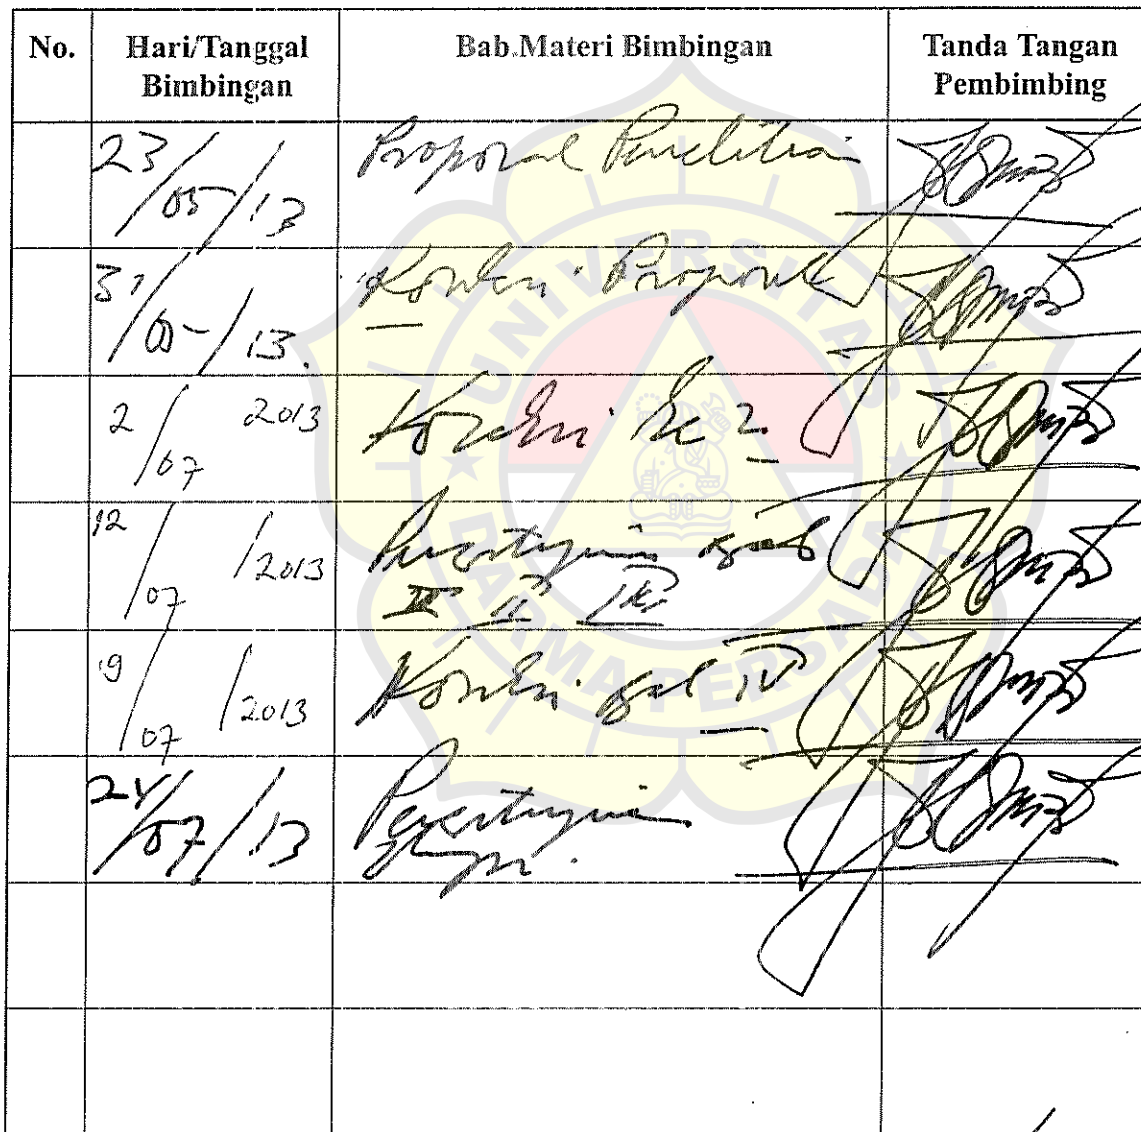 No. Hari/Tanggal Bimbingan Bab Materi Bimbingan Tanda Tangan Pembimbing
23/05/13 Proposal Penelitian
31/05/13 Koreksi Proposal
2/07 2013 Koreksi ke 2.
12/07/2013 Persetujuan Bab
II III
19/07/2013 Koreksi Bab IV
24/07/13 Persetujuan
UNIVERSITAS
DARMA PERSADA